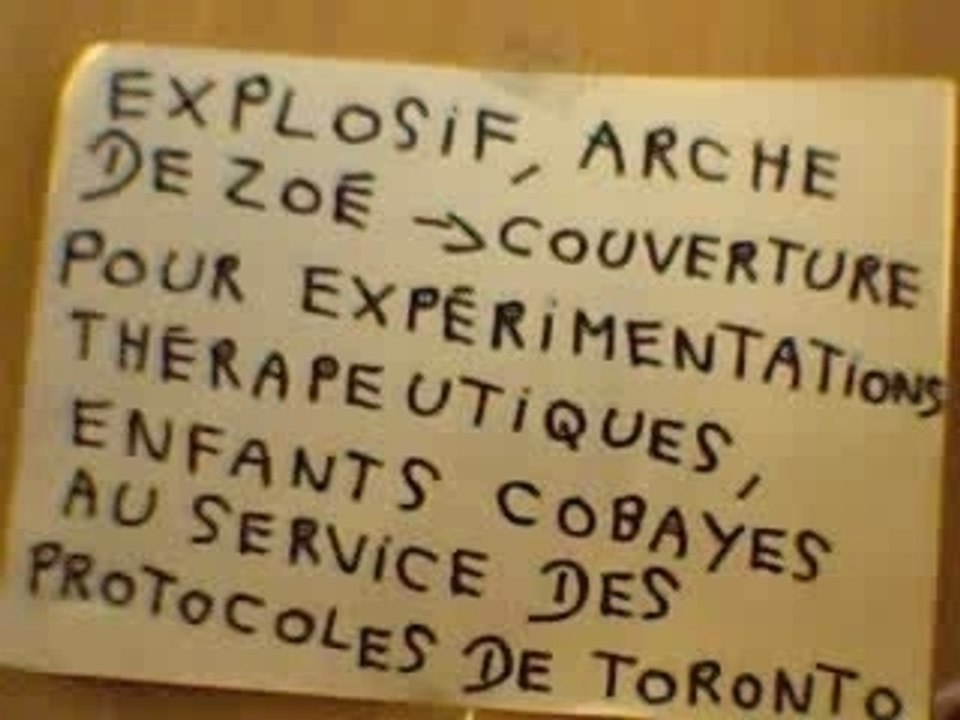 EXPLOSiF, ARCHE
DE ZOÉ → COUVERTURE
POUR EXPÉRiMENTATiONS
THÉRAPEUTiQUES,
ENFANTS COBAYES
AU SERViCE DES
PROTOCOLES DE TORONTO